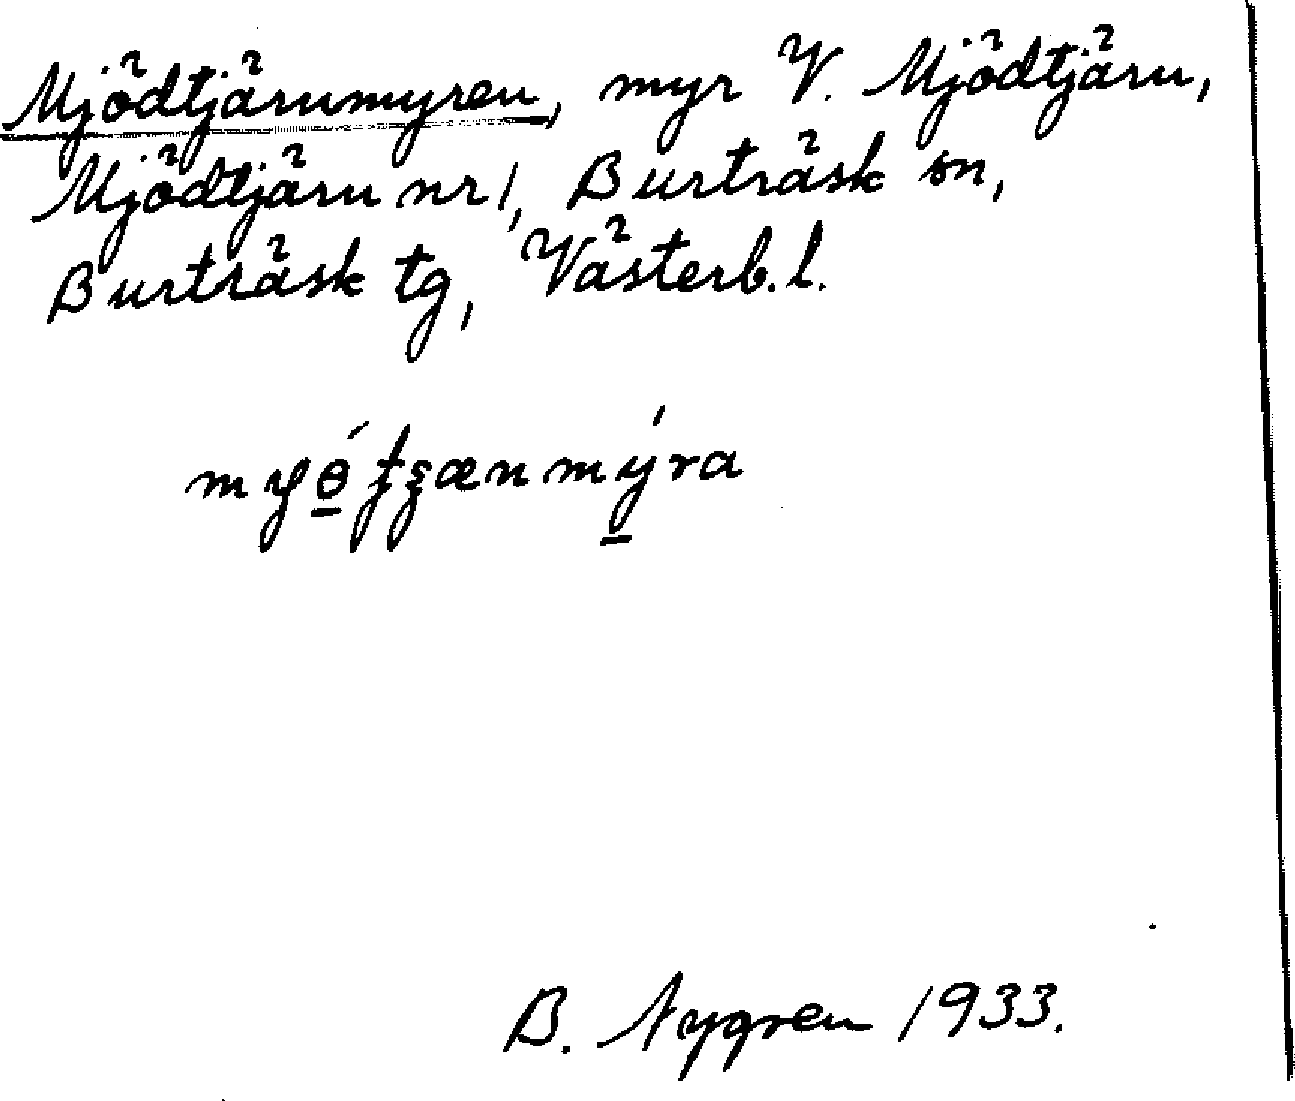 Mjödtjärnmyren, myr V. Mjödtjärn,
Mjödtjärn nr 1, Burträsk sn,
Burträsk tg, Västerb. l.
B. Nygren 1933.